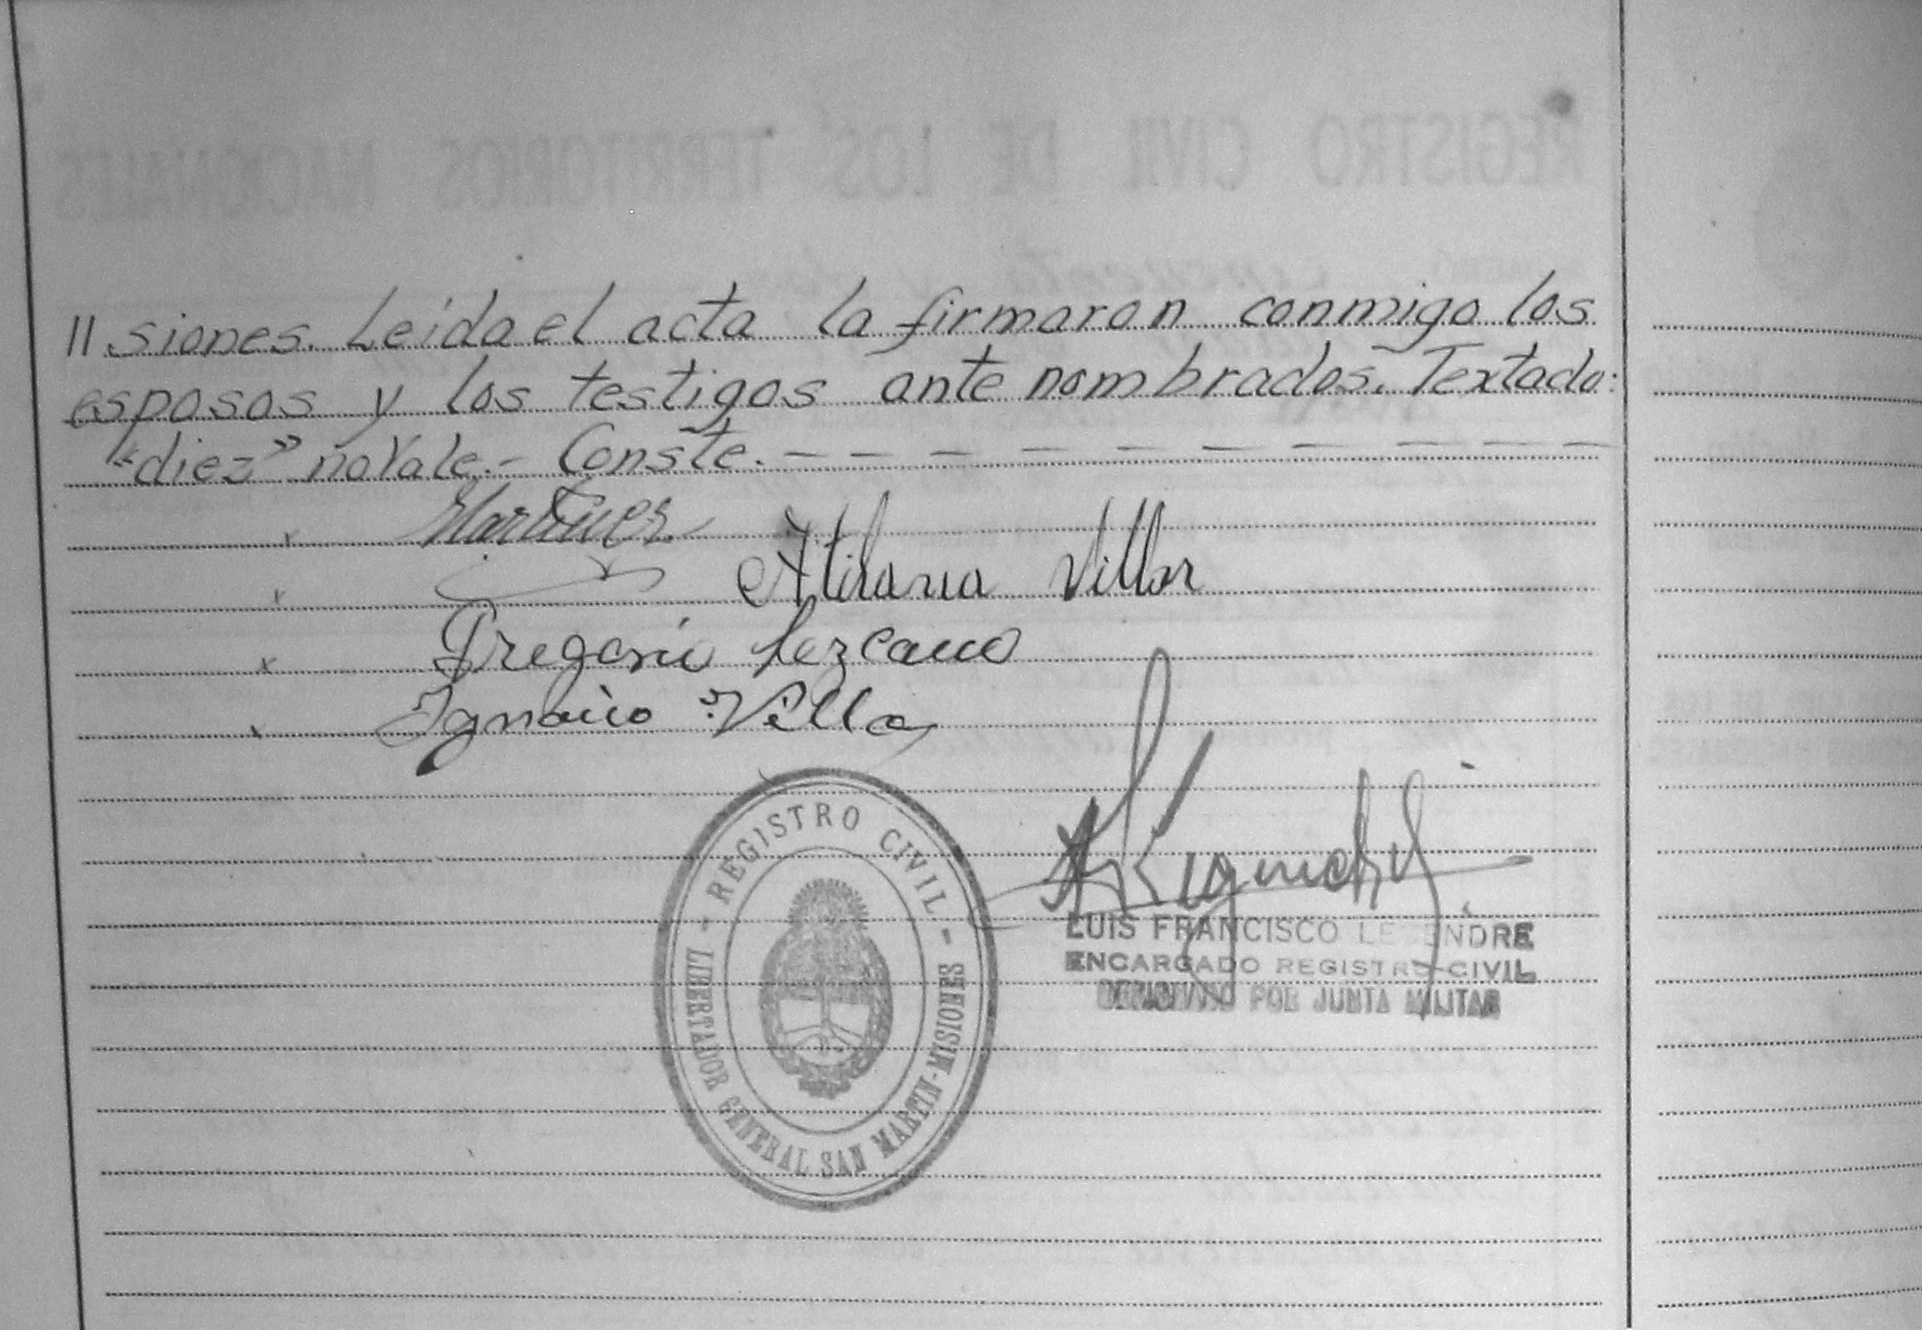 // siones. Leída el acta la firmaron conmigo los
esposos y los testigos ante nombrados. Textado:
"diez" no Vale.- Conste. - - - - - - - - - -
x Martinez
x Villar
x Gregorio Lezcano
x Ignacio Villa
- REGISTRO CIVIL -
LIBERTADOR GENERAL SAN MARTIN - MISIONES
LUIS FRANCISCO LE ENDRE
ENCARGADO REGISTRO CIVIL
DESIGNADO POR JUNTA MILITAR
REGISTRO CIVIL DE LOS TERRITORIOS NACIONALES